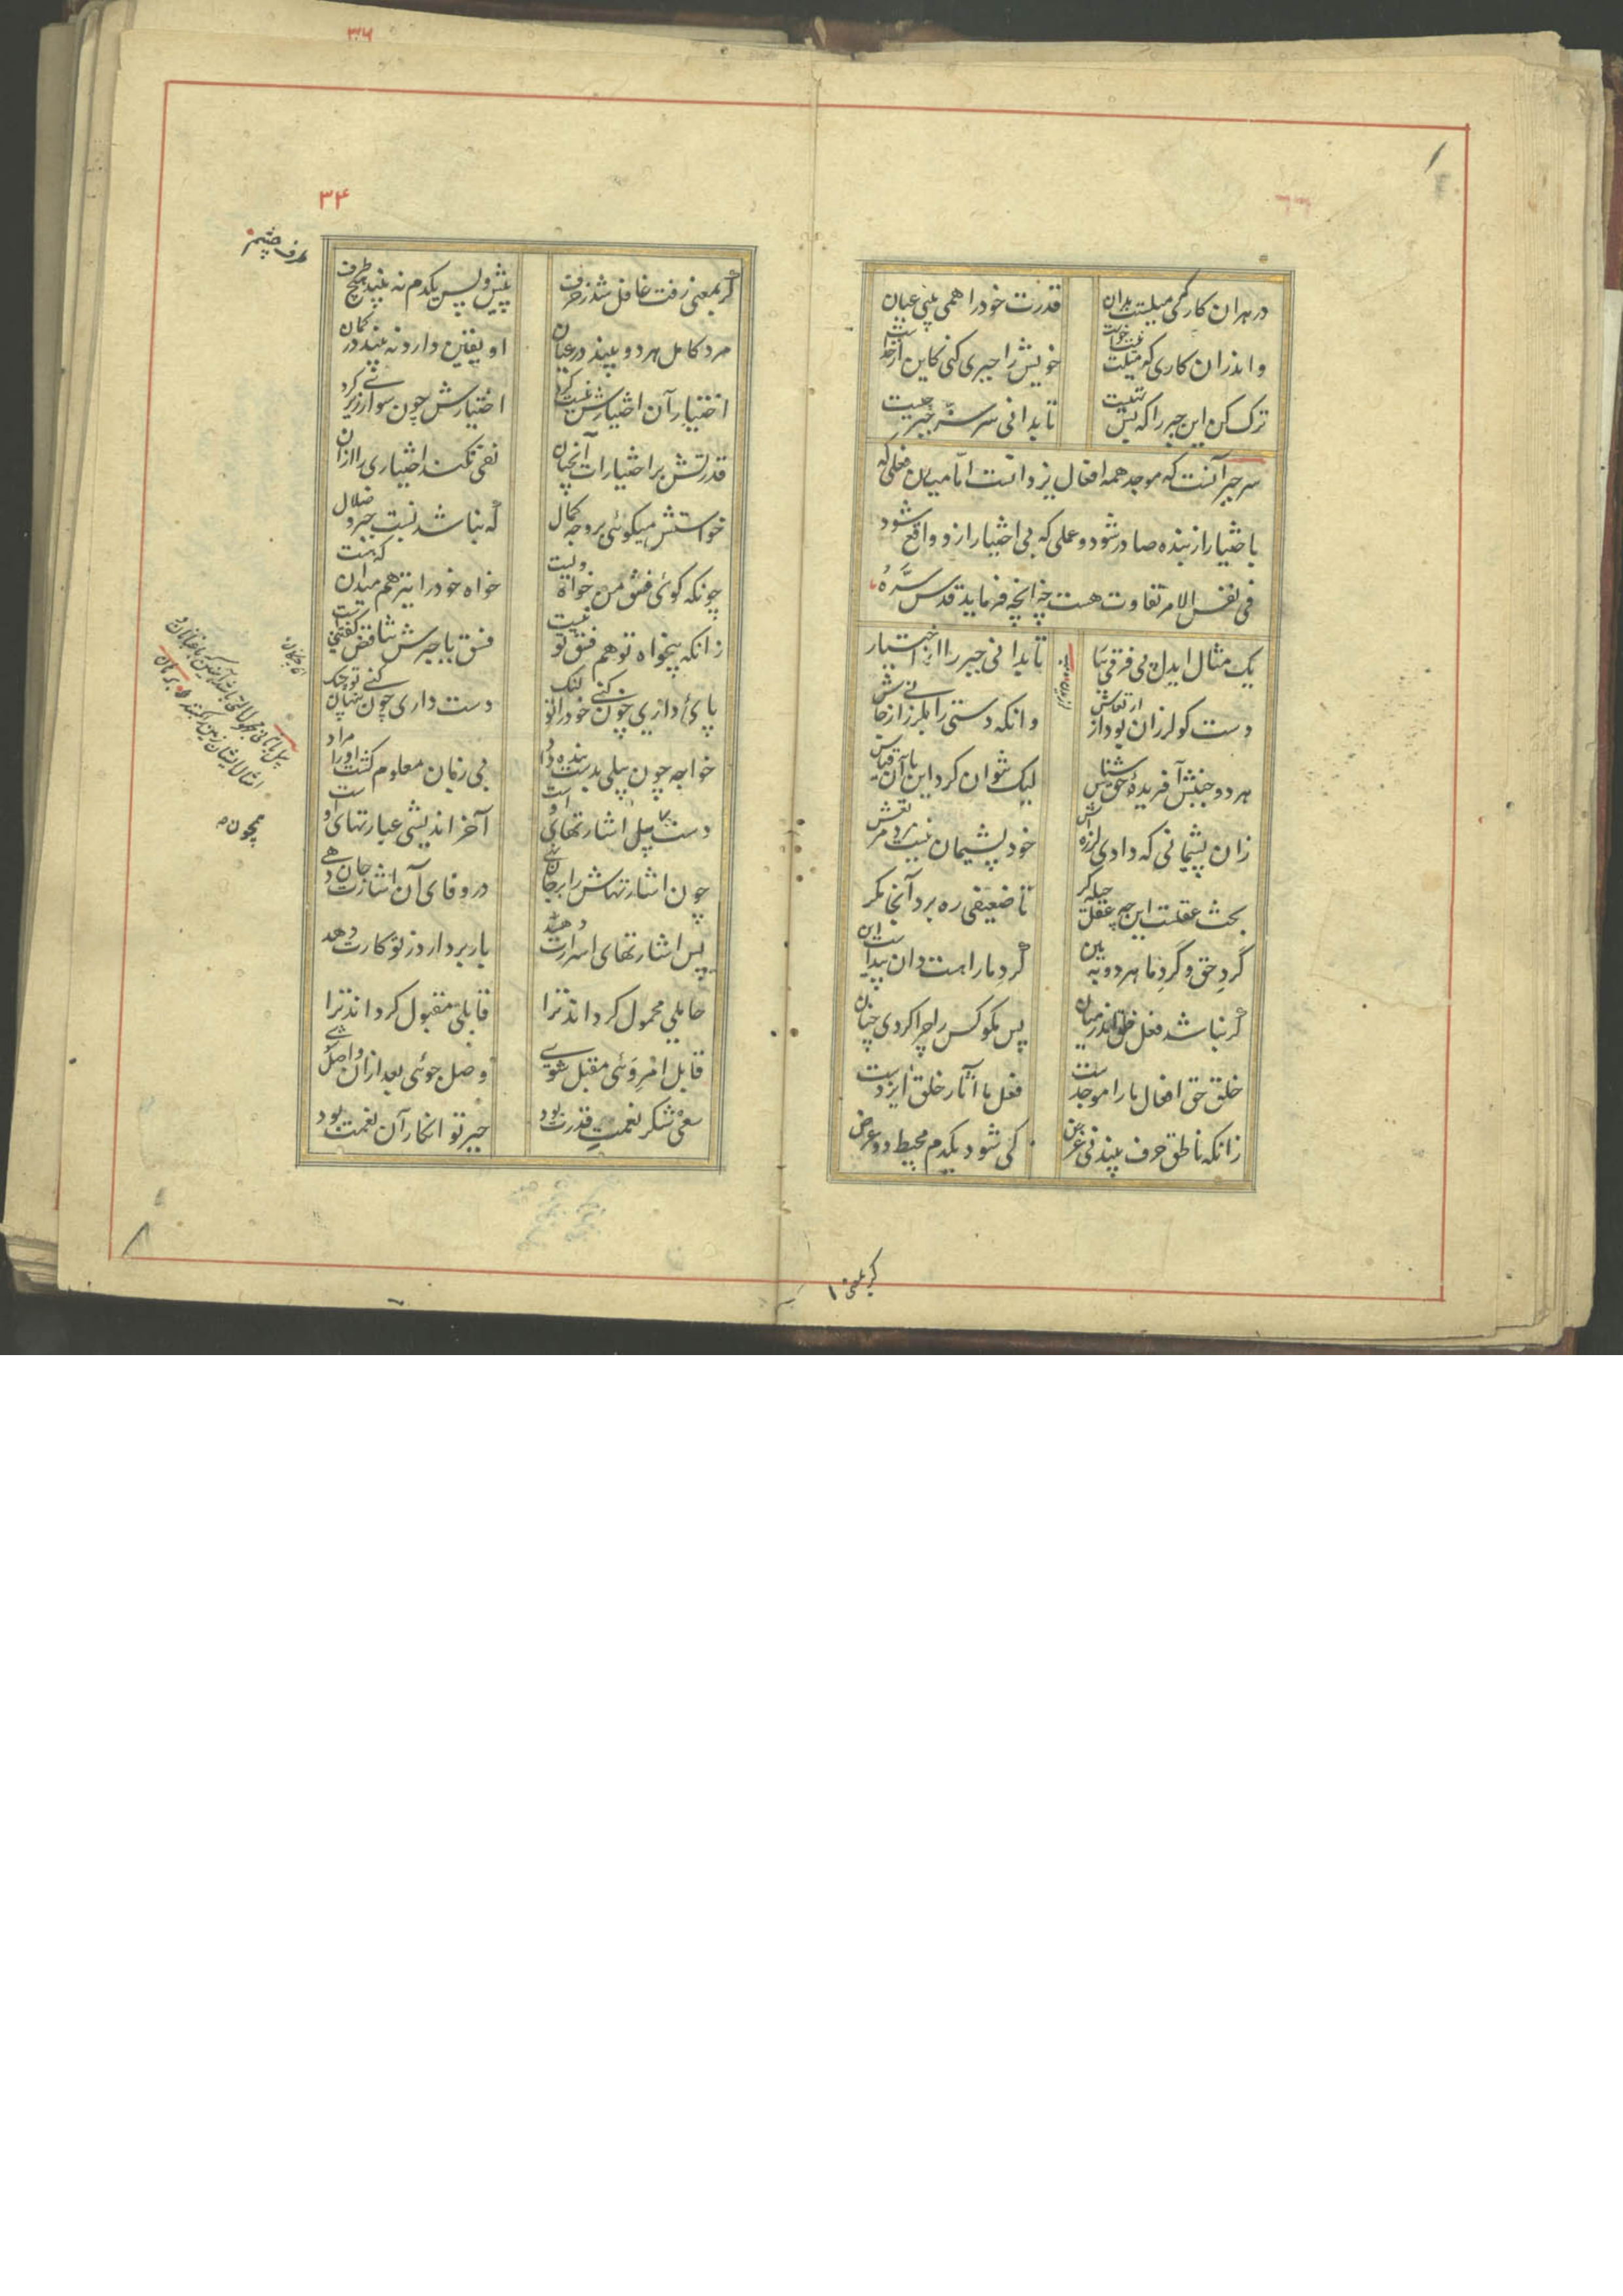 در هران کار که میلستت بدان
قدرت خود را همی بینی عیان
و اندران کاری که میلت نیست و خواست
خویش را جبری کنی کاین از خداست
ترک کن این جبر را که بس تهیست
تا بدانی سر سرّ جبر چیست
سر جبر آنست که موجد همه افعال یزدانست اما میان فعلی که
باختیار از بنده صادر شود و عملی که بی اختیار ازو واقع شود
فی نفس الامر تفاوت هست چنانچه فرماید قدس سرّه
یک مثال ایدل پی فرقی بیا
تا بدانی جبر را از اختیار
دست کو لرزان بود از ارتعاش
وانکه دستی را بلرزانی ز جاش
هر دو جنبش آفریدهٔ حق شناس
لیک نتوان کرد این با آن قیاس
زان پشیمانی که دادی لرزه اش
خود پشیمان نیست مرد مرتعش
بحث عقلست این چه عقل حیله گر
تا ضعیفی ره برد آنجا مگر
گردِ حق و گردِ ما هر دو ببین
گرد ما را هست دان پیداست این
گر نباشد فعل خلق اندر میان
پس مگو کس را چرا کردی چنان
خلق حق افعال ما را موجدست
فعل ما آثار خلق ایزدست
زانکه ناطق حرف بیند نی غرض
کی شود یکدم محیط دو عرض
گر بمعنی
۳۴
گر بمعنی رفت غافل شد ز حرف
پیش و پس یکدم نه بیند هیچ طرف
طرف چشم
مرد کامل هر دو بیند در عیان
او یقین دارد نه بیند در گمان
اختیار آن اختیارش نیست کرد
اختیارش چون سوار زیر گرد
قدرتش بر اختیارات آنچنان
نفی نکند اختیاری را ازان
خواستش میگوئی بر وجه کمال
که نباشد نسبت جبر و ضلال
چونکه گوئی فسق من خواه ویست
خواه خود را نیز هم میدان که هست
زانکه بیخواه تو هم فسق تو نیست
فسق با جبرش تناقض گفتنیست
پای داری چون کنی خود را تو لنگ
دست داری چون کنی پنهان تو چنگ
خواجه چون بیلی بدست بنده داد
بی زبان معلوم گشت او را مراد
دست بیل اشارتهای اوست
آخر اندیشی عبارتهای اوست
چون اشارتهاش را بر جان نهی
در وفای آن اشارت جان دهی
پس اشارتهای اسرارت دهد
بار بردارد ز تو کارت دهد
حاملی محمول گرداند ترا
قابلی مقبول گرداند ترا
قابل امر وئی مقبل شوی
وصل جوئی بعد ازان واصل شوی
سعی شکر نعمتِ قدرت بود
جبر تو انکار آن نعمت بود
همچون